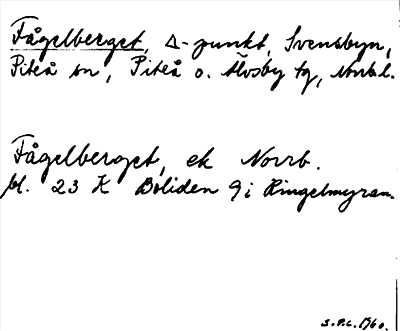 Fågelberget, Δ-punkt, Svensbyn,
Piteå sn, Piteå o. Älvsby tg, Norrb l.
Fågelberget, ek Norrb.
bl. 23 K Boliden 9 i Ringelmyran.
S.P.L. 1960.